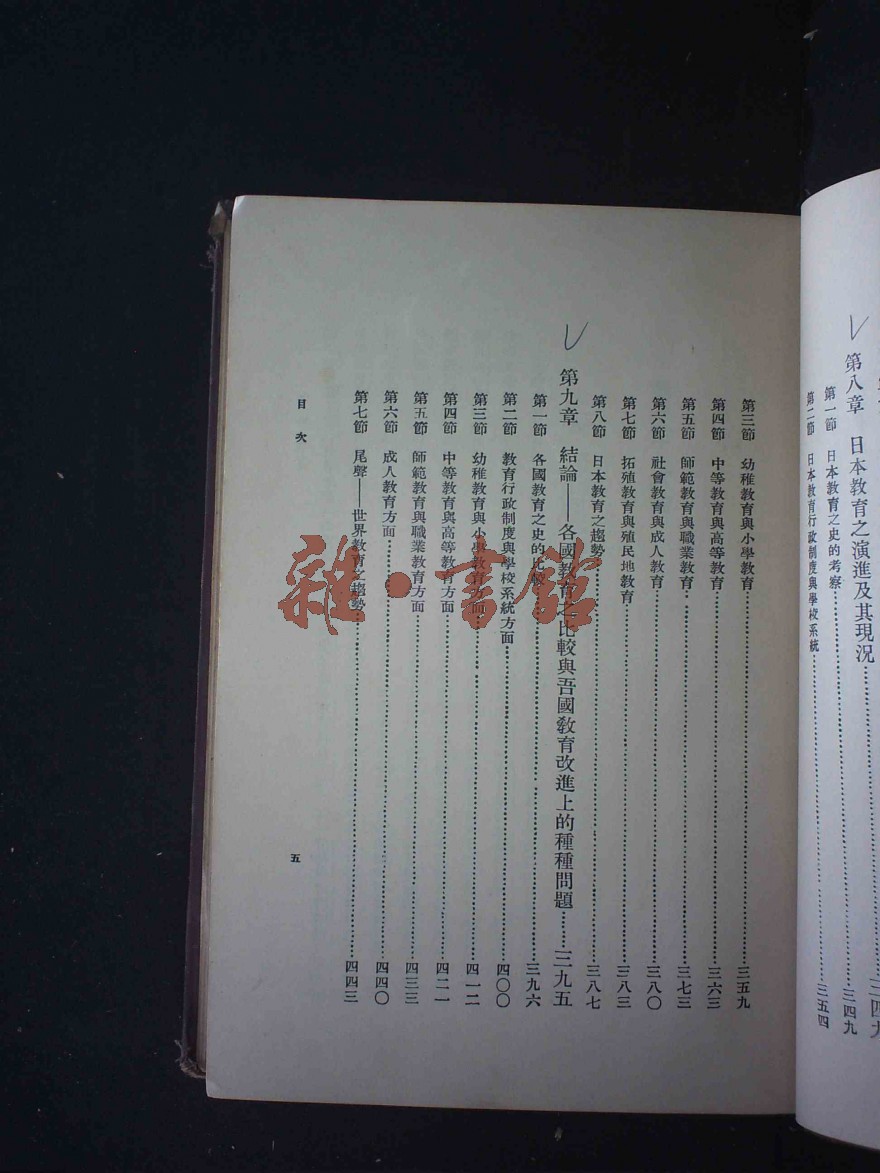 第八章　日本教育之演進及其現況
第一節　日本教育之史的考察……三四九
第二節　日本教育行政制度與學校系統……三五四
第三節　幼稚教育與小學教育……三五九
第四節　中等教育與高等教育……三六三
第五節　師範教育與職業教育……三七三
第六節　社會教育與成人教育……三八〇
第七節　拓殖教育與殖民地教育……三八三
第八節　日本教育之趨勢……三八七
第九章　結論——各國教育之比較與吾國教育改進上的種種問題……三九五
第一節　各國教育之史的比較……三九六
第二節　教育行政制度與學校系統方面……四〇〇
第三節　幼稚教育與小學教育方面……四一二
第四節　中等教育與高等教育方面……四二一
第五節　師範教育與職業教育方面……四三三
第六節　成人教育方面……四四〇
第七節　尾聲——世界教育之趨勢……四四三
目次
五
雜·書館